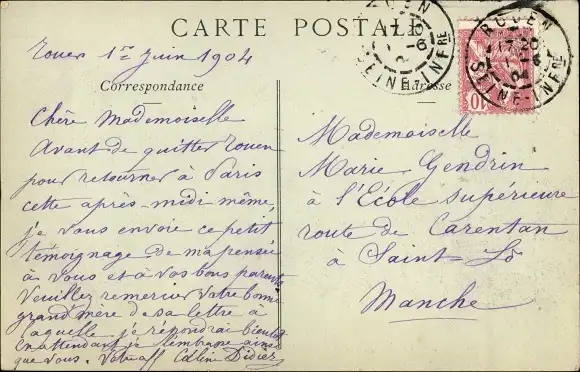 CARTE POSTALE
ROUEN
SEINE-INFRE
ROUEN
17 20
SEINE-INFRE
10
Rouen 1er Juin 1904
Correspondance
Adresse
Chère Mademoiselle
Avant de quitter Rouen
pour retourner à Paris
cette après-midi même,
je vous envoie ce petit
témoignage de ma pensée
à vous et à vos bons parents
Veuillez remercier votre bonne
grand'mère de sa lettre à
laquelle je répondrai bientôt
En attendant je l'embrasse ainsi
que vous. Votre aff Céline Didier
Mademoiselle
Marie Gendrin
à l'École supérieure
route de Carentan
à Saint-Lô
Manche